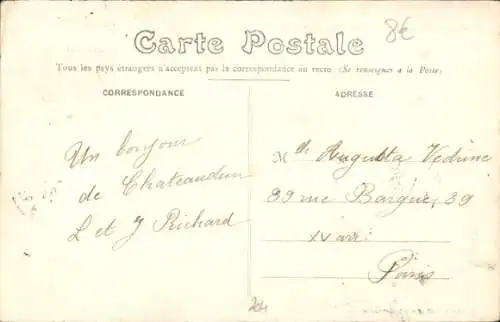 8€
Carte Postale
Tous les pays étrangers n'acceptent pas la correspondance au recto (Se renseigner à la Poste)
CORRESPONDANCE
ADRESSE
Un bonjour
de Chateaudun
L et J Richard
Mlle Augusta Vedrine
39 rue Bargue, 39
XV arr:
Paris